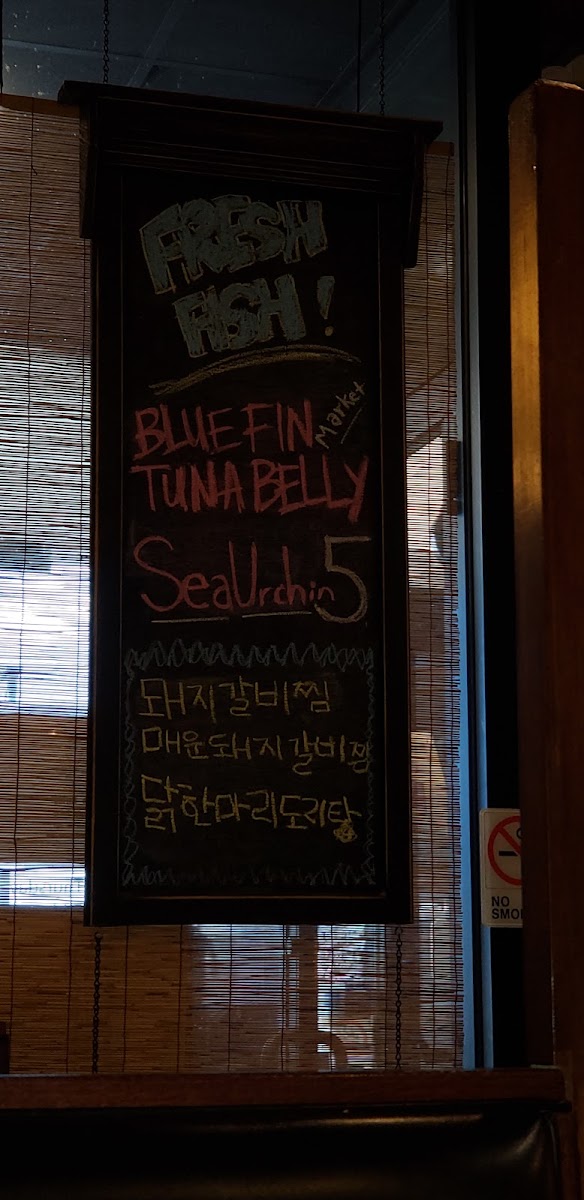 FRESH
FISH!
BLUE FIN Market
TUNA BELLY
Sea Urchin 5
돼지갈비찜
매운돼지갈비찜
닭한마리도리탕
NO